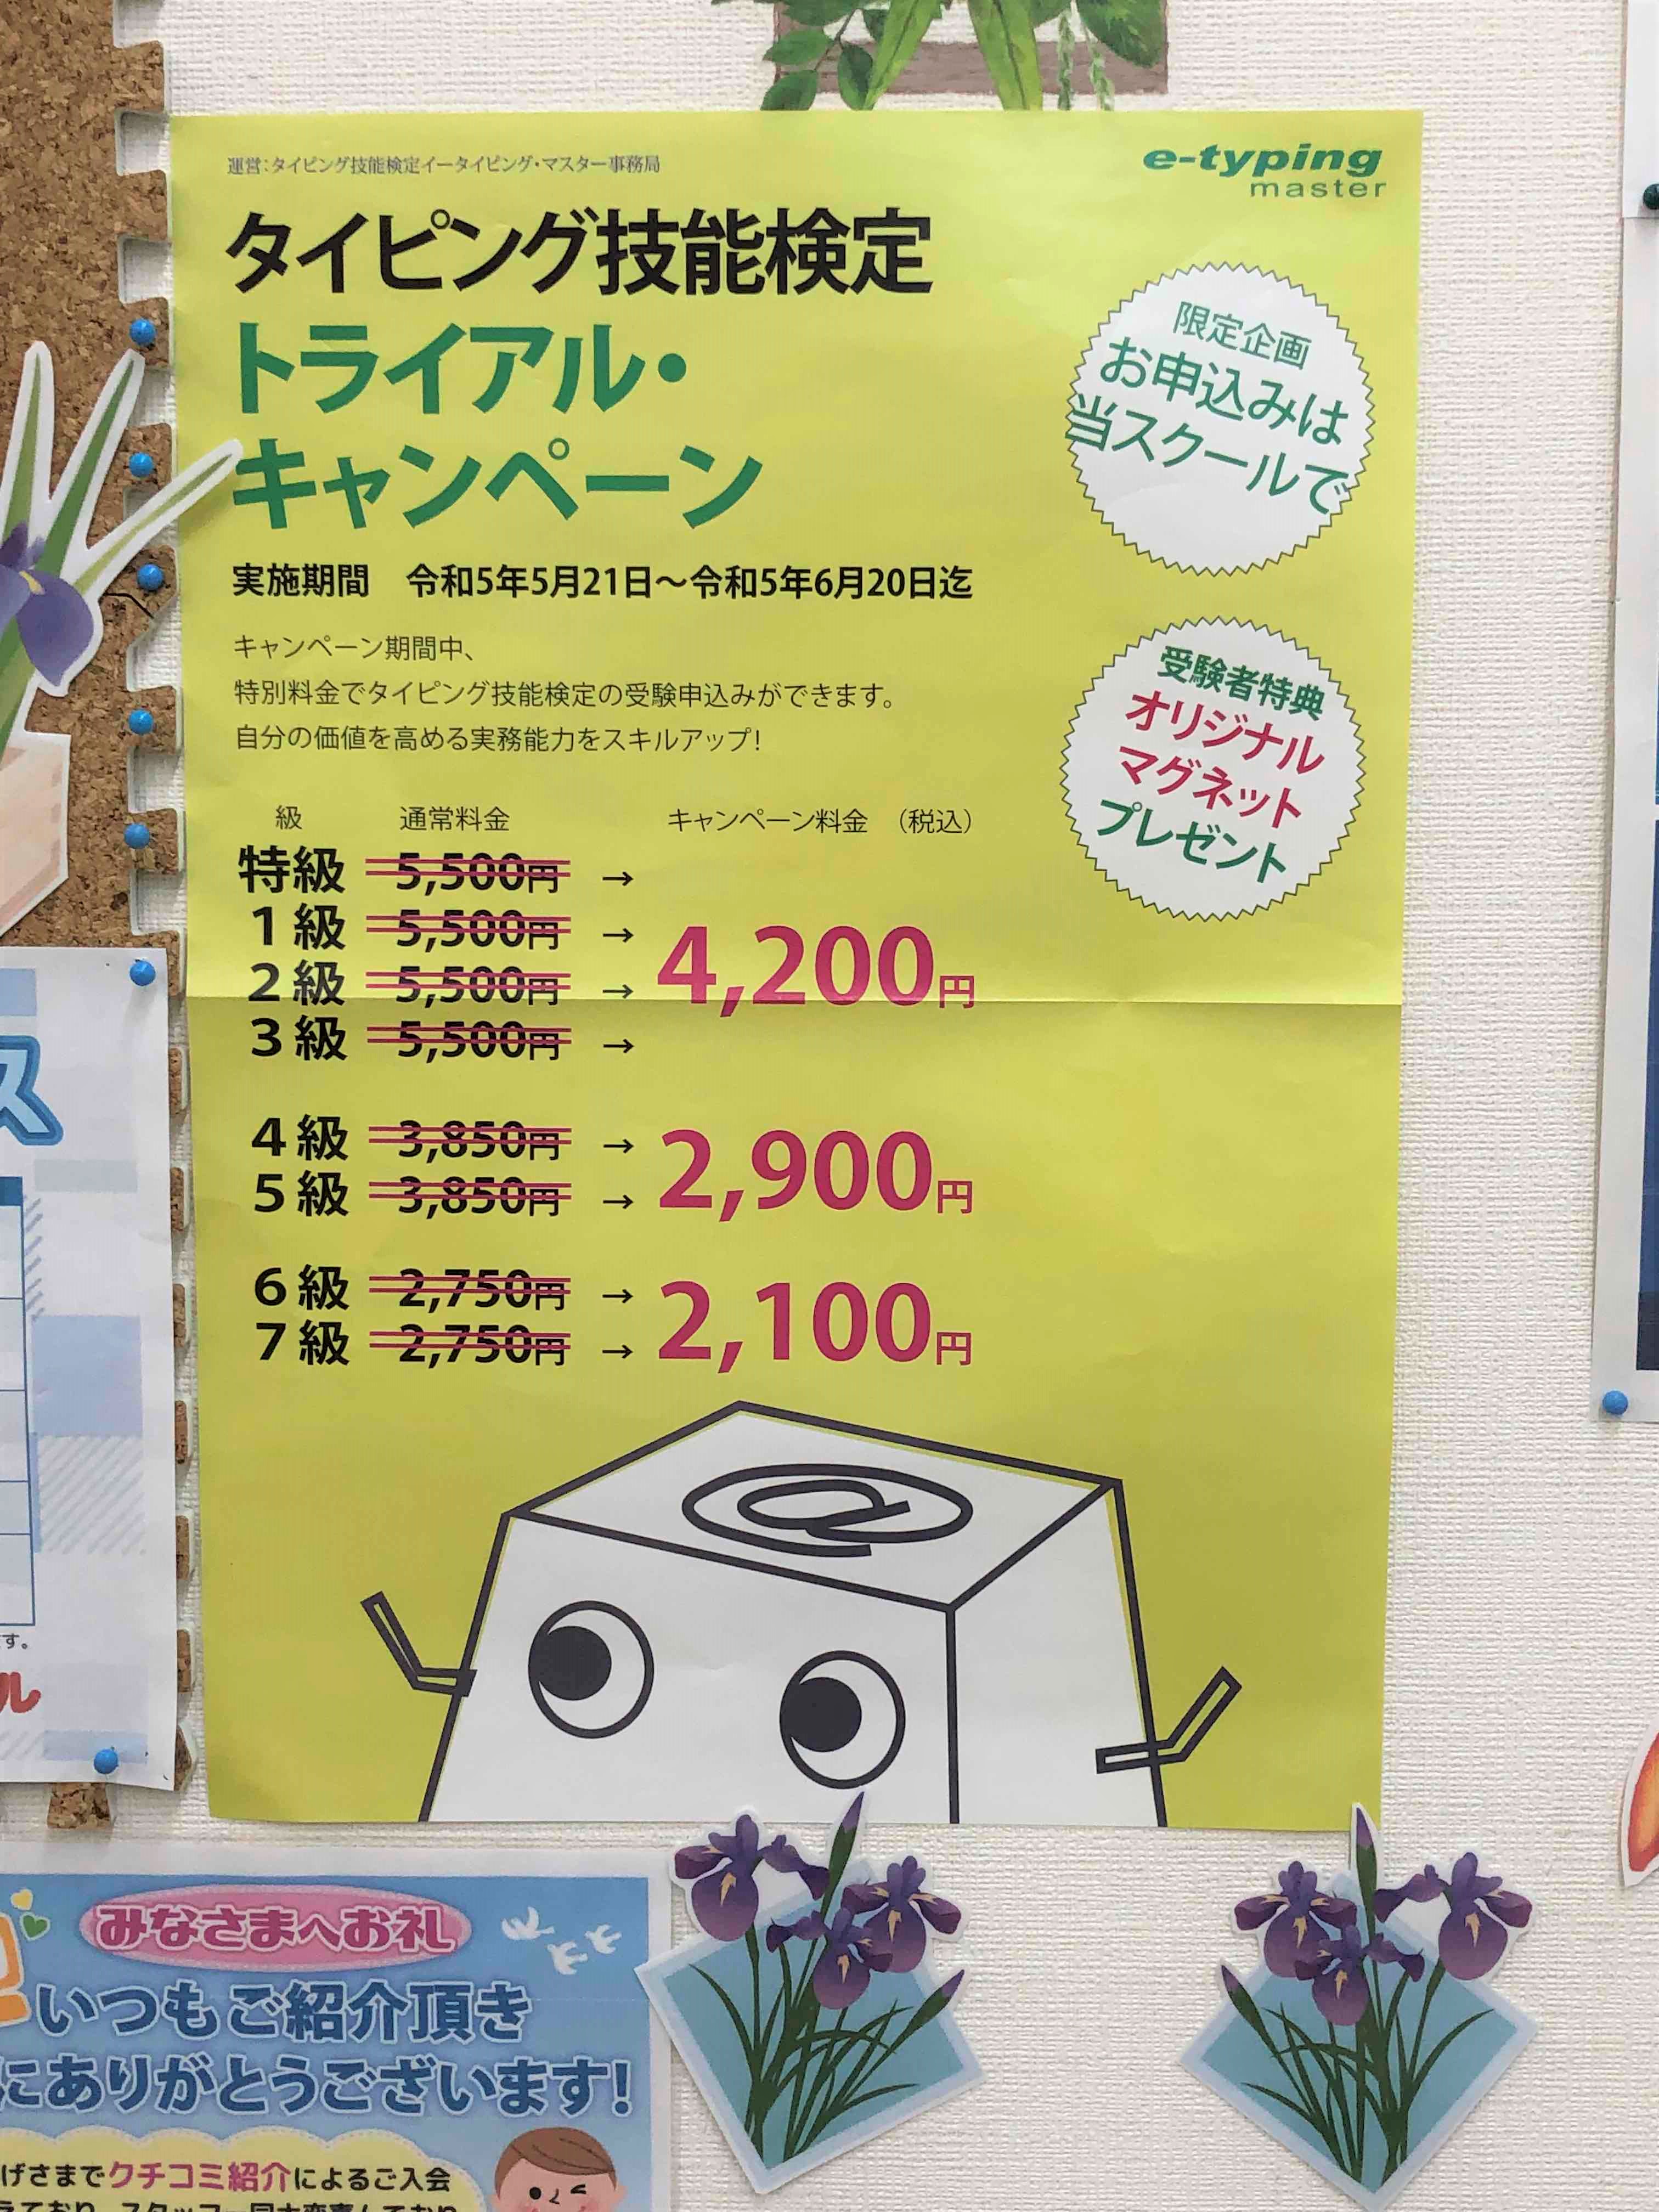 運営:タイピング技能検定イータイピング・マスター事務局
e-typing
master
タイピング技能検定
トライアル・
キャンペーン
限定企画
お申込みは
当スクールで
実施期間 令和5年5月21日〜令和5年6月20日迄
キャンペーン期間中、
特別料金でタイピング技能検定の受験申込みができます。
自分の価値を高める実務能力をスキルアップ!
受験者特典
オリジナル
マグネット
プレゼント
級 通常料金 キャンペーン料金 (税込)
特級 5,500円 →
1級 5,500円 →
2級 5,500円 → 4,200円
3級 5,500円 →
4級 3,850円 → 2,900円
5級 3,850円 →
6級 2,750円 → 2,100円
7級 2,750円 →
@
ス
す。
ル
みなさまへお礼
いつもご紹介頂き
にありがとうございます!
げさまでクチコミ紹介によるご入会